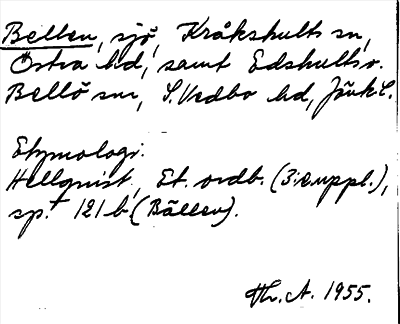 Bellen, sjö, Kråkshults sn,
Östra hd, samt Edshults o.
Bellö snr, S. Vedbo hd, Jönk. l.
Etymologi:
Hellquist, Et. ordb. (3:e uppl.),
sp. 121 b (Bällen).
Hr. A. 1955.